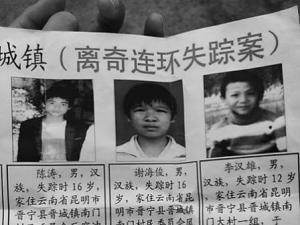 城镇（离奇连环失踪案）
陈涛，男，
汉族，失踪时16岁，
家住云南省昆明
市晋宁县晋城镇南门
谢海俊，男，
汉族，失踪时16
岁，家住云南省昆
明市晋宁县晋城镇
南门村民委员会
李汉雄，男，
汉族，失踪时12岁，
家住云南省昆明市
晋宁县晋城镇南门
大村一组，于